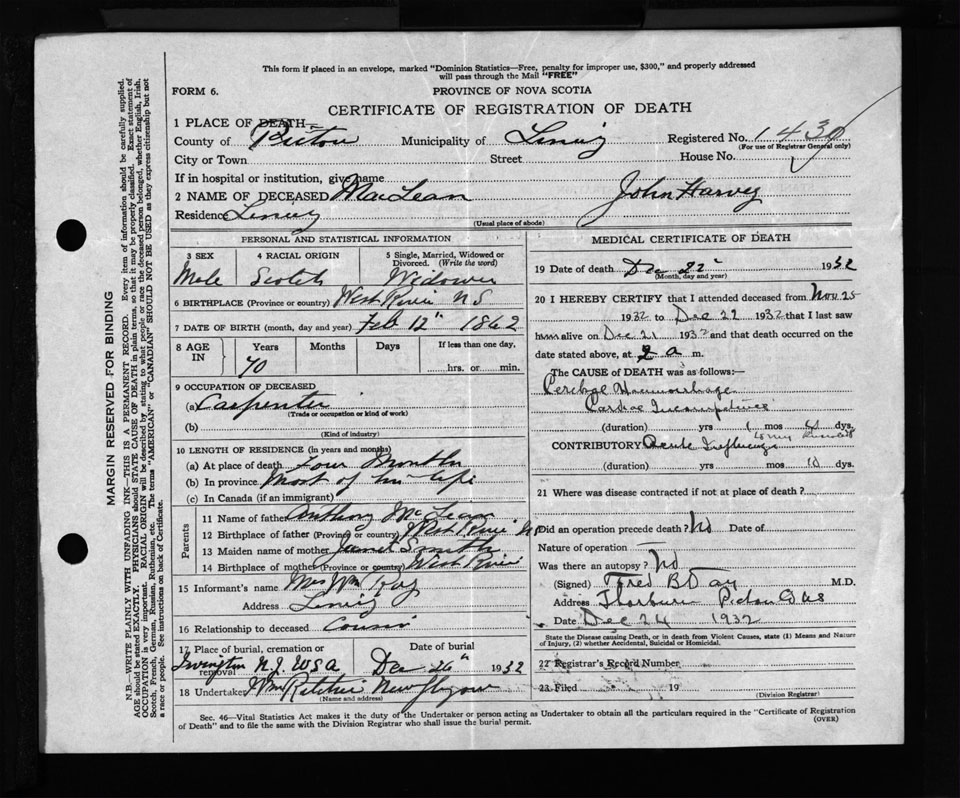 This form if placed in an envelope, marked "Dominion Statistics—Free, penalty for improper use, $300," and properly addressed
will pass through the Mail "FREE"
FORM 6.
PROVINCE OF NOVA SCOTIA
CERTIFICATE OF REGISTRATION OF DEATH
1 PLACE OF DEATH—
County of Pictou Municipality of Registered No. 1430
(For use of Registrar General only)
City or Town Street House No.
If in hospital or institution, give name
2 NAME OF DECEASED MacLean John Harvey
Residence
(Usual place of abode)
PERSONAL AND STATISTICAL INFORMATION
3 SEX 4 RACIAL ORIGIN 5 Single, Married, Widowed or Divorced. (Write the word)
Male Scotch Widower
6 BIRTHPLACE (Province or country) West River N S
7 DATE OF BIRTH (month, day and year) Feb 12" 1862
8 AGE IN Years Months Days If less than one day,
70 hrs. or min.
9 OCCUPATION OF DECEASED
(a) Carpenter
(Trade or occupation or kind of work)
(b)
(Kind of industry)
10 LENGTH OF RESIDENCE (in years and months)
(a) At place of death Four Months
(b) In province Most of his life
(c) In Canada (if an immigrant)
Parents
11 Name of father Anthony McLean
12 Birthplace of father (Province or country) West River NS
13 Maiden name of mother Janet Smith
14 Birthplace of mother (Province or country) West River
15 Informant's name Mrs Wm
Address
16 Relationship to deceased Cousin
17 Place of burial, cremation or removal Date of burial
Irvington N.J. USA Dec 26" 1932
18 Undertaker Wm Ritchie New Glasgow
(Name and address)
MEDICAL CERTIFICATE OF DEATH
19 Date of death Dec 22" 1932
(Month, day and year)
20 I HEREBY CERTIFY that I attended deceased from Nov. 25
1932 to Dec 22 1932 that I last saw
him alive on Dec 21 1932 and that death occurred on
date stated above, at 2 a m.
The CAUSE of DEATH was as follows:—
Haemorrhage
Cardiac
(duration) yrs mos dys.
CONTRIBUTORY Acute Influenza
(duration) yrs mos 10 dys.
21 Where was disease contracted if not at place of death?
Did an operation precede death? No Date of
Nature of operation —
Was there an autopsy? No
(Signed) Fred B Day M.D.
Address Thorburn Pictou Co NS
Date Dec 24 1932
State the Disease causing Death, or in death from Violent Causes, state (1) Means and Nature of Injury, (2) whether Accidental, Suicidal or Homicidal.
22 Registrar's Record Number
23 Filed 19
(Division Registrar)
Sec. 46—Vital Statistics Act makes it the duty of the Undertaker or person acting as Undertaker to obtain all the particulars required in the "Certificate of Registration
of Death" and to file the same with the Division Registrar who shall issue the burial permit.
(OVER)
MARGIN RESERVED FOR BINDING
N.B.—WRITE PLAINLY WITH UNFADING INK—THIS IS A PERMANENT RECORD. Every item of information should be carefully supplied.
AGE should be stated EXACTLY. PHYSICIANS should STATE CAUSE OF DEATH in plain terms, so that it may be properly classified. Exact statement of
OCCUPATION is very important. RACIAL ORIGIN will be described by stating to what people or race the deceased person belonged, whether English, Irish,
Scotch, French, German, Russian, Ruthenian, etc. The terms "AMERICAN" or "CANADIAN" SHOULD NOT BE USED as they express citizenship but not
a race or people. See instructions on back of Certificate.